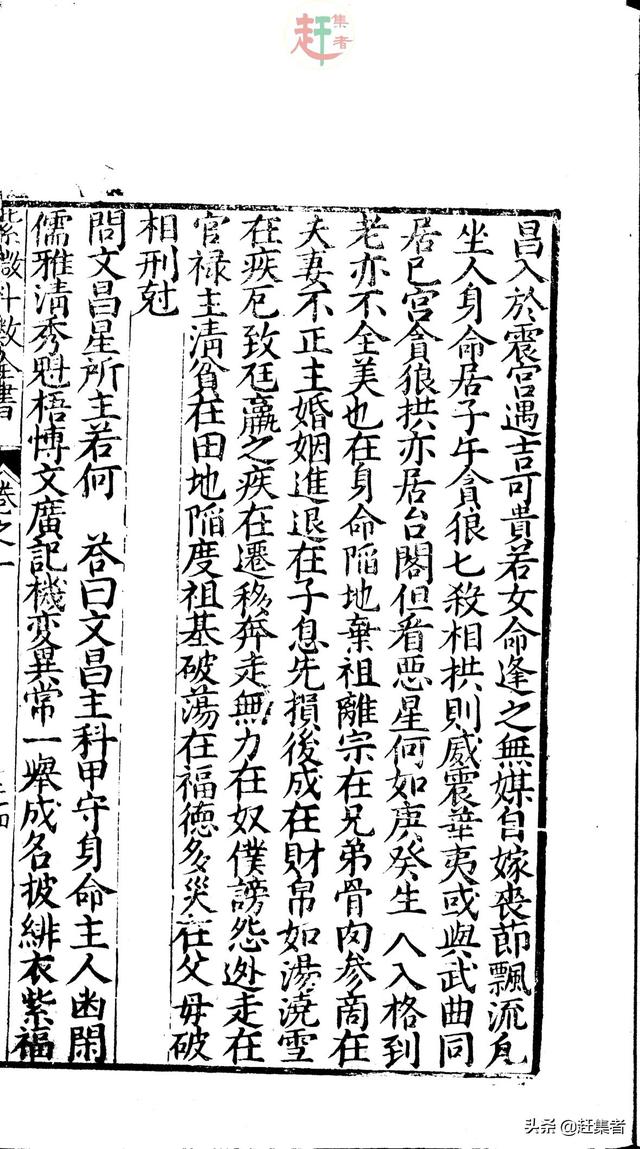 赶集者
昌入於震宮遇吉可貴若女命逢之無媒自嫁喪節飄流凢
坐人身命居子午貪狼七殺相拱則威震華夷或與武曲同
居巳宮貪狼拱亦居台閣但看惡星何如庚癸生人入格到
老亦不全美也在身命陷地棄祖離宗在兄弟骨肉參商在
夫妻不正主婚姻進退在子息先損後成在財帛如湯澆雪
在疾厄致尫羸之疾在遷移奔走無力在奴僕謗怨迯走在
官禄主清貧在田地陷度祖基破蕩在福德多災在父母破
相刑尅
問文昌星所主若何　荅曰文昌主科甲守身命主人幽閑
儒雅清秀魁梧博文廣記機变異常一舉成名披緋衣紫福
紫微斗數全書 卷之一
头条 @赶集者